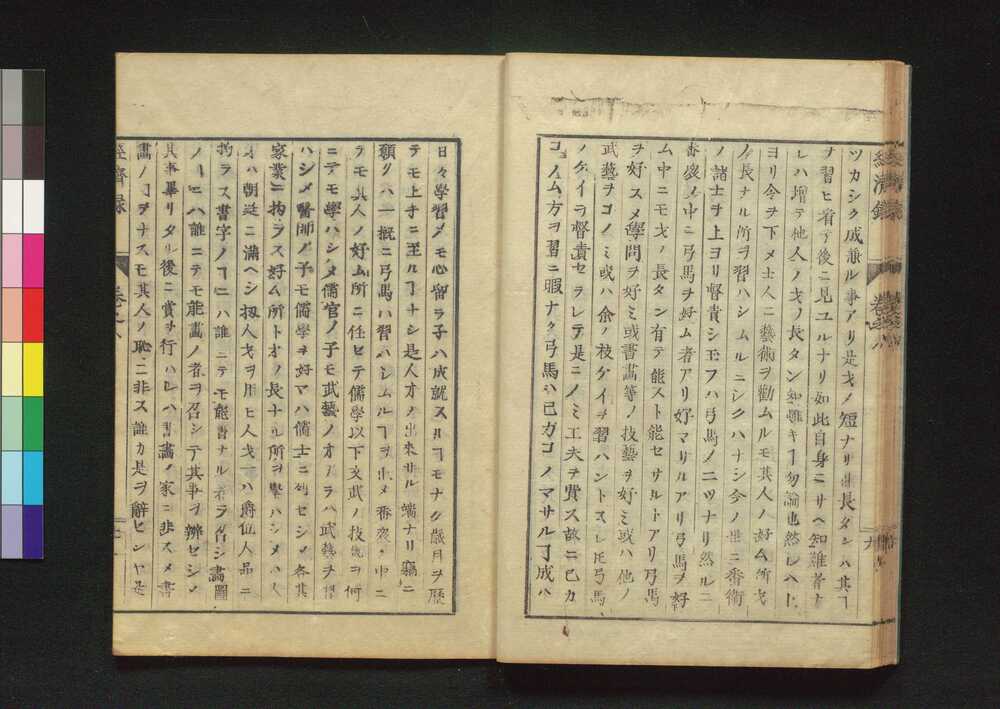 ツカシク成兼ル事アリ是才ノ短ナリ其長タンハ其丁
ヲ習ヒ看テ後ニ見ユルナリ如此自身ニサヘ知難者ナ
レハ増テ他人ノ才ノ長タン知難キ丁勿論也然レハ上
ヨリ令ヲ下メ士人ニ藝術ヲ勸ムルモ其人ノ好ム所才
ノ長ナル所ヲ習ハシムルニシクハナシ今ノ世ニ番衛
ノ諸士ヲ上ヨリ督責シ玉フハ弓馬ノ二ツナリ然ルニ
番衆ノ中ニ弓馬ヲ好ム者アリ好マサルアリ弓馬ヲ好
ム中ニモ才ノ長タン有テ能スト能セサルトアリ弓馬
ヲ好スメ學問ヲ好ミ或書畫等ノ技藝ヲ好ミ或ハ他ノ
武藝ヲコノミ或ハ余ノ枝ゲイヲ習ハントスレ𪜈弓馬
ノゲイヲ督責セラレテ是ニノミ工夫ヲ費ス故ニ己カ
コノム方ヲ習ニ暇ナク弓馬ハ己ガコノマサル丁成ハ
日々學習メモ心留ラ子ハ成就スル丁モナク歳月ヲ歴
テモ上手ニ至ル丁ナシ是人才ノ出來サル端ナリ竊ニ
願クハ一概ニ弓馬ハ習ハシムル丁ヲ止メ番衆ノ中ニ
テモ其人ノ好ム所ニ任セテ儒學以下文武ノ技藝ヲ何
ニテモ學ハシメ儒官ノ子モ武藝ノ才アラハ武藝ヲ習
ハシメ醫師ノ子モ儒學ヲ好マハ儒士ニ列セシメ各其
家業ニ拘ラス好ム所ト才ノ長ナル所ヲ學ハシメハ人
才ハ朝廷ニ滿ヘシ扨人才ヲ用ヒ人才ハ爵位人品ニ
拘ラス書字ノ丁ニハ誰ニテモ能書ナル者ヲ召シ畫圖
ノ丁ニハ誰ニテモ能畫ノ者ヲ召シテ其事ヲ辨セシメ
其事畢リタル後ニ賞ヲ行ハレハ書畫ノ家ニ非スメ書
畫ノ丁ヲナスモ其人ノ恥ニ非ス誰カ是ヲ辭センヤ是
經濟録
卷之八